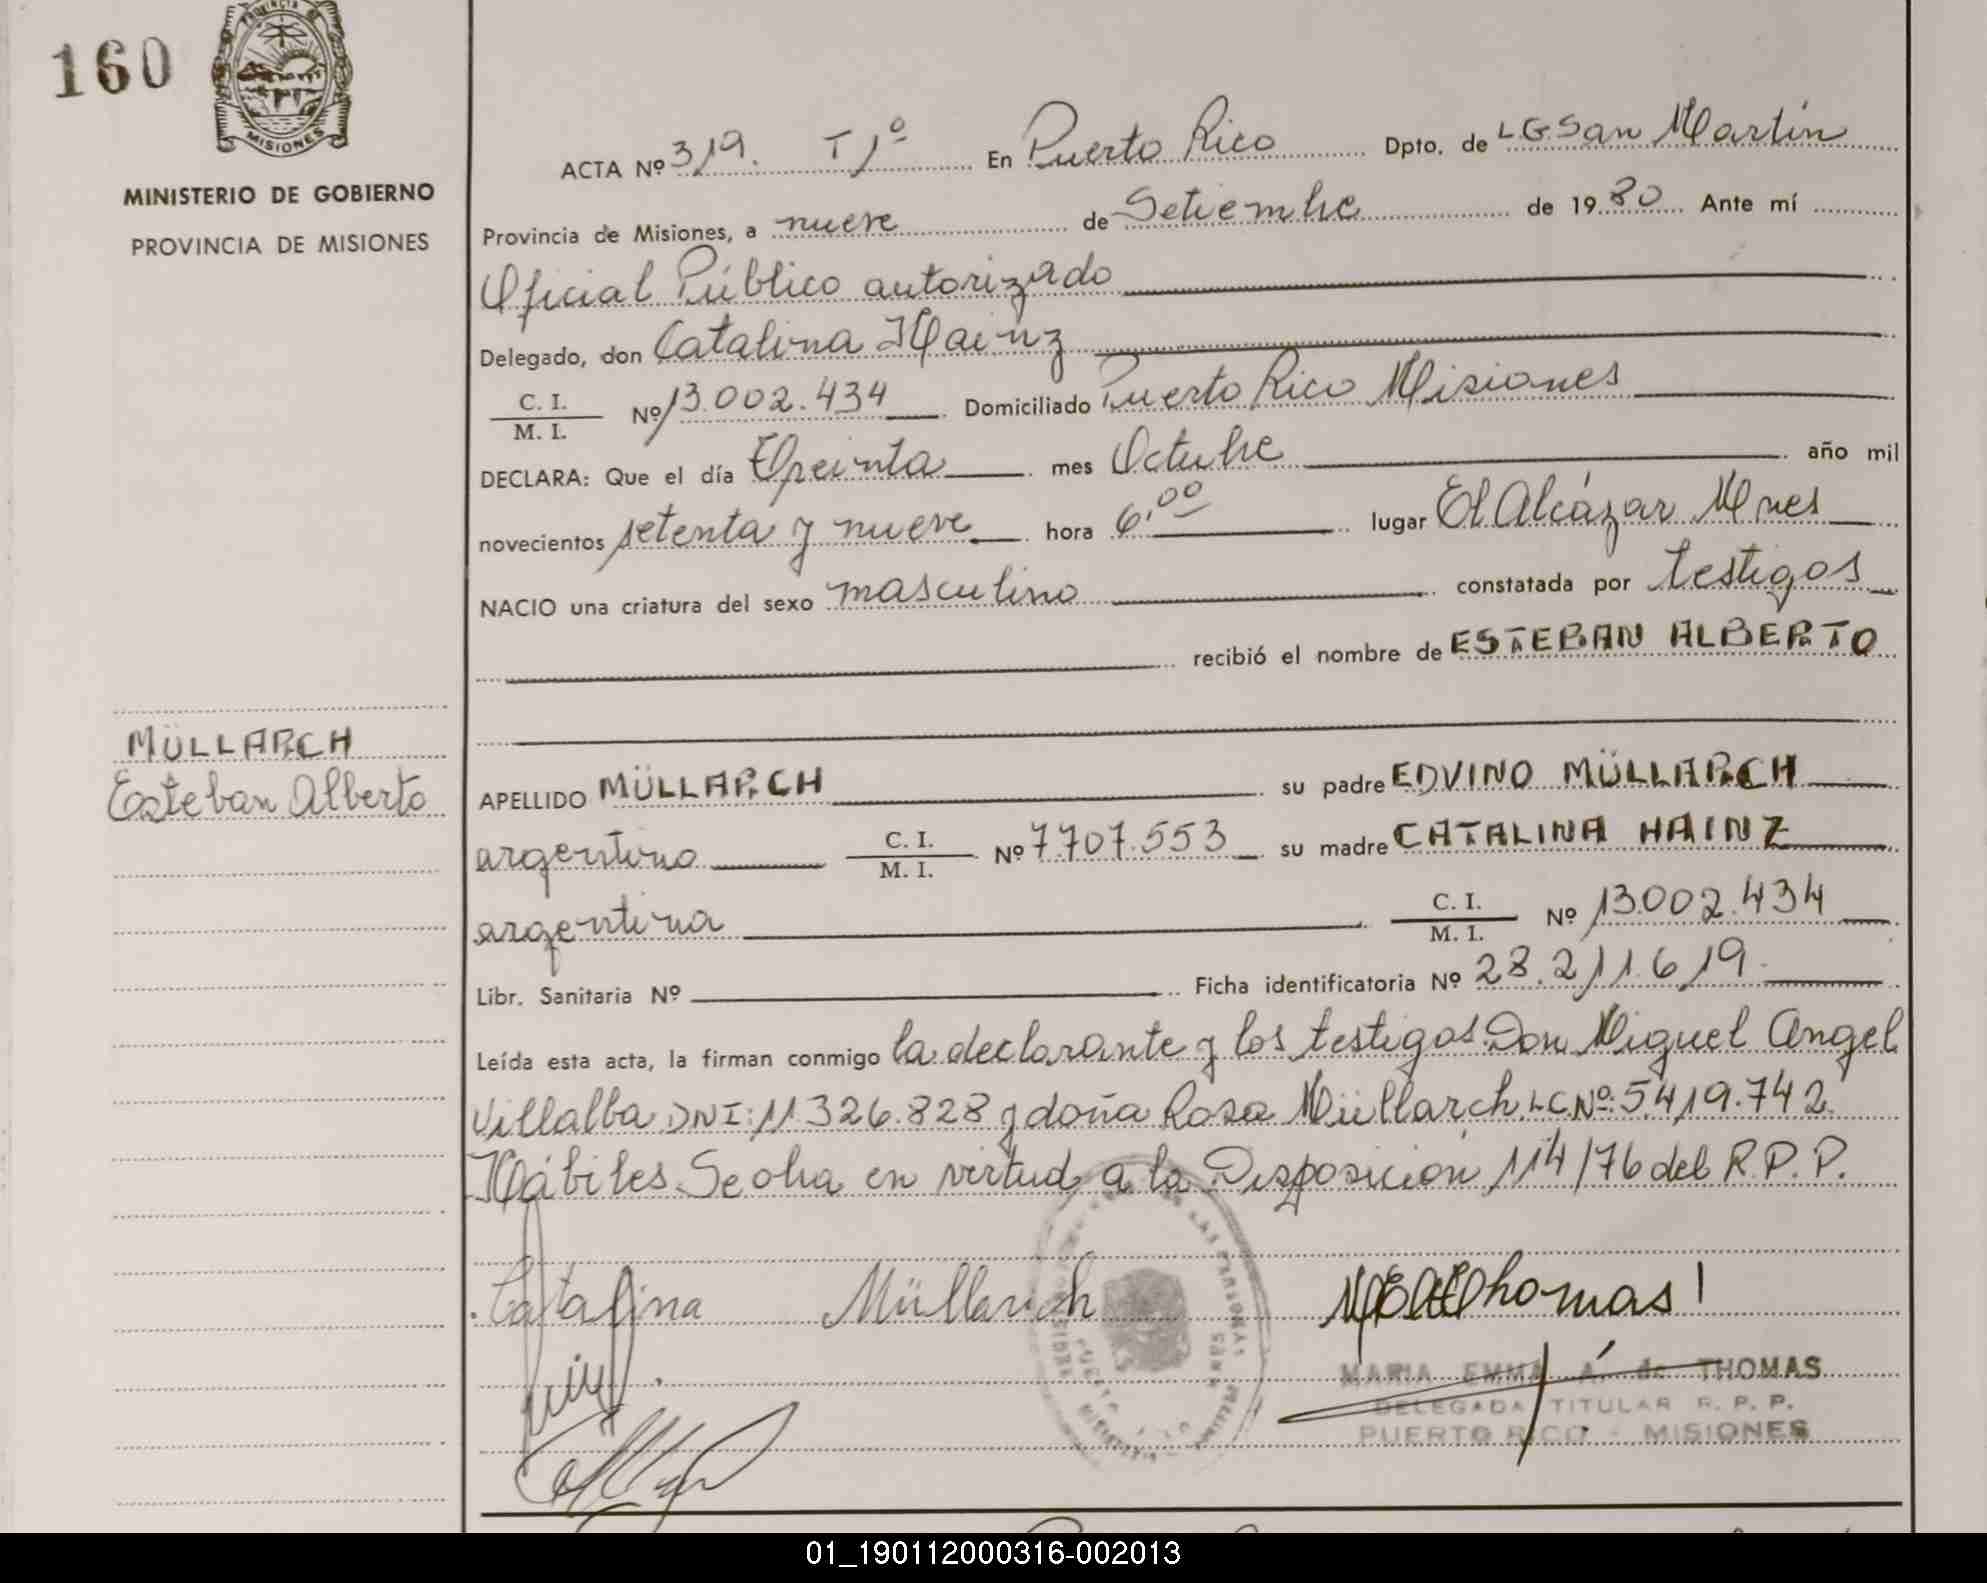 160
PROVINCIA DE
MISIONES
MINISTERIO DE GOBIERNO
PROVINCIA DE MISIONES
ACTA Nº 319. T 1º En Puerto Rico Dpto. de L.G.San Martín
Provincia de Misiones, a nueve de Setiembre de 19 80 Ante mí
Oficial Público autorizado
Delegado, don Catalina Hainz
C. I.
M. I. Nº 13.002.434 Domiciliado Puerto Rico Misiones
DECLARA: Que el día Treinta mes Octubre año mil
novecientos setenta y nueve hora 6,00 lugar El Alcázar Mnes
NACIO una criatura del sexo masculino constatada por testigos
recibió el nombre de ESTEBAN ALBERTO
MÜLLARCH
Esteban Alberto
APELLIDO MÜLLARCH su padre EDVINO MÜLLARCH
argentino C. I.
M. I. Nº 7.707.553 su madre CATALINA HAINZ
argentina C. I.
M. I. Nº 13.002.434
Libr. Sanitaria Nº Ficha identificatoria Nº 28.211.619.
Leída esta acta, la firman conmigo la declarante y los testigos Don Miguel Angel
Villalba DNI: 11.326.828 y doña Rosa Müllarch L.C.Nº. 5.419.742
Hábiles. Se olra en virtud a la Disposición 114/76 del R.P.P.
Catalina Müllarch
MEAThomas
MARIA EMMA A. de THOMAS
DELEGADA TITULAR R. P. P.
PUERTO RICO - MISIONES
01_190112000316-002013